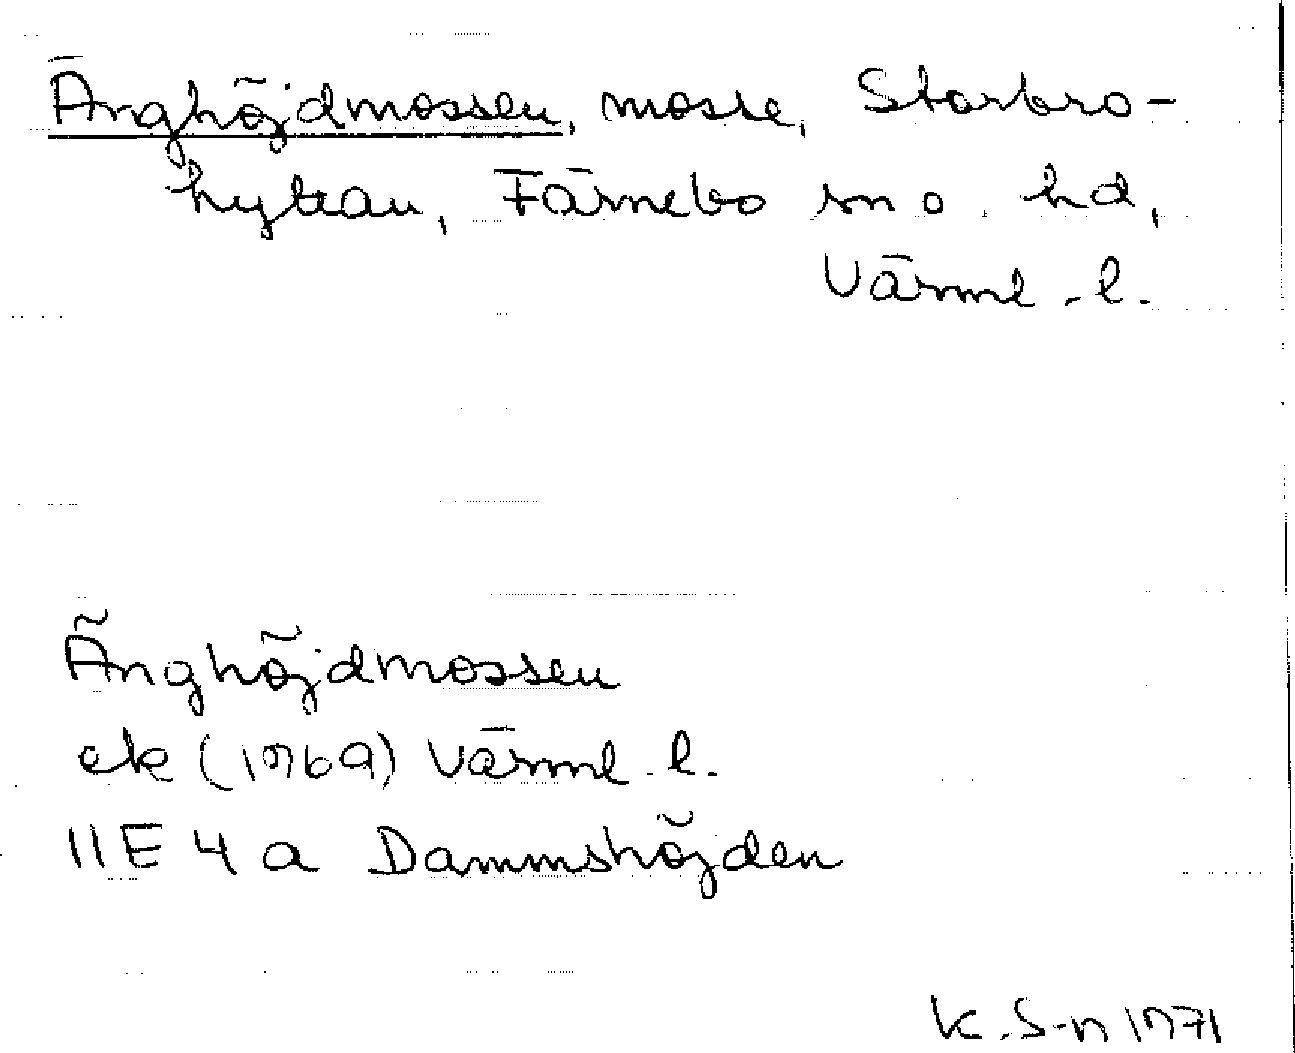 Änghöjdmossen, mosse, Storbro-
hyttan, Färnebo sn o. hd,
Värml. l.
Änghöjdmossen
ek (1969) Värml. l.
11E 4a Dammshöjden
K.S-n 1971